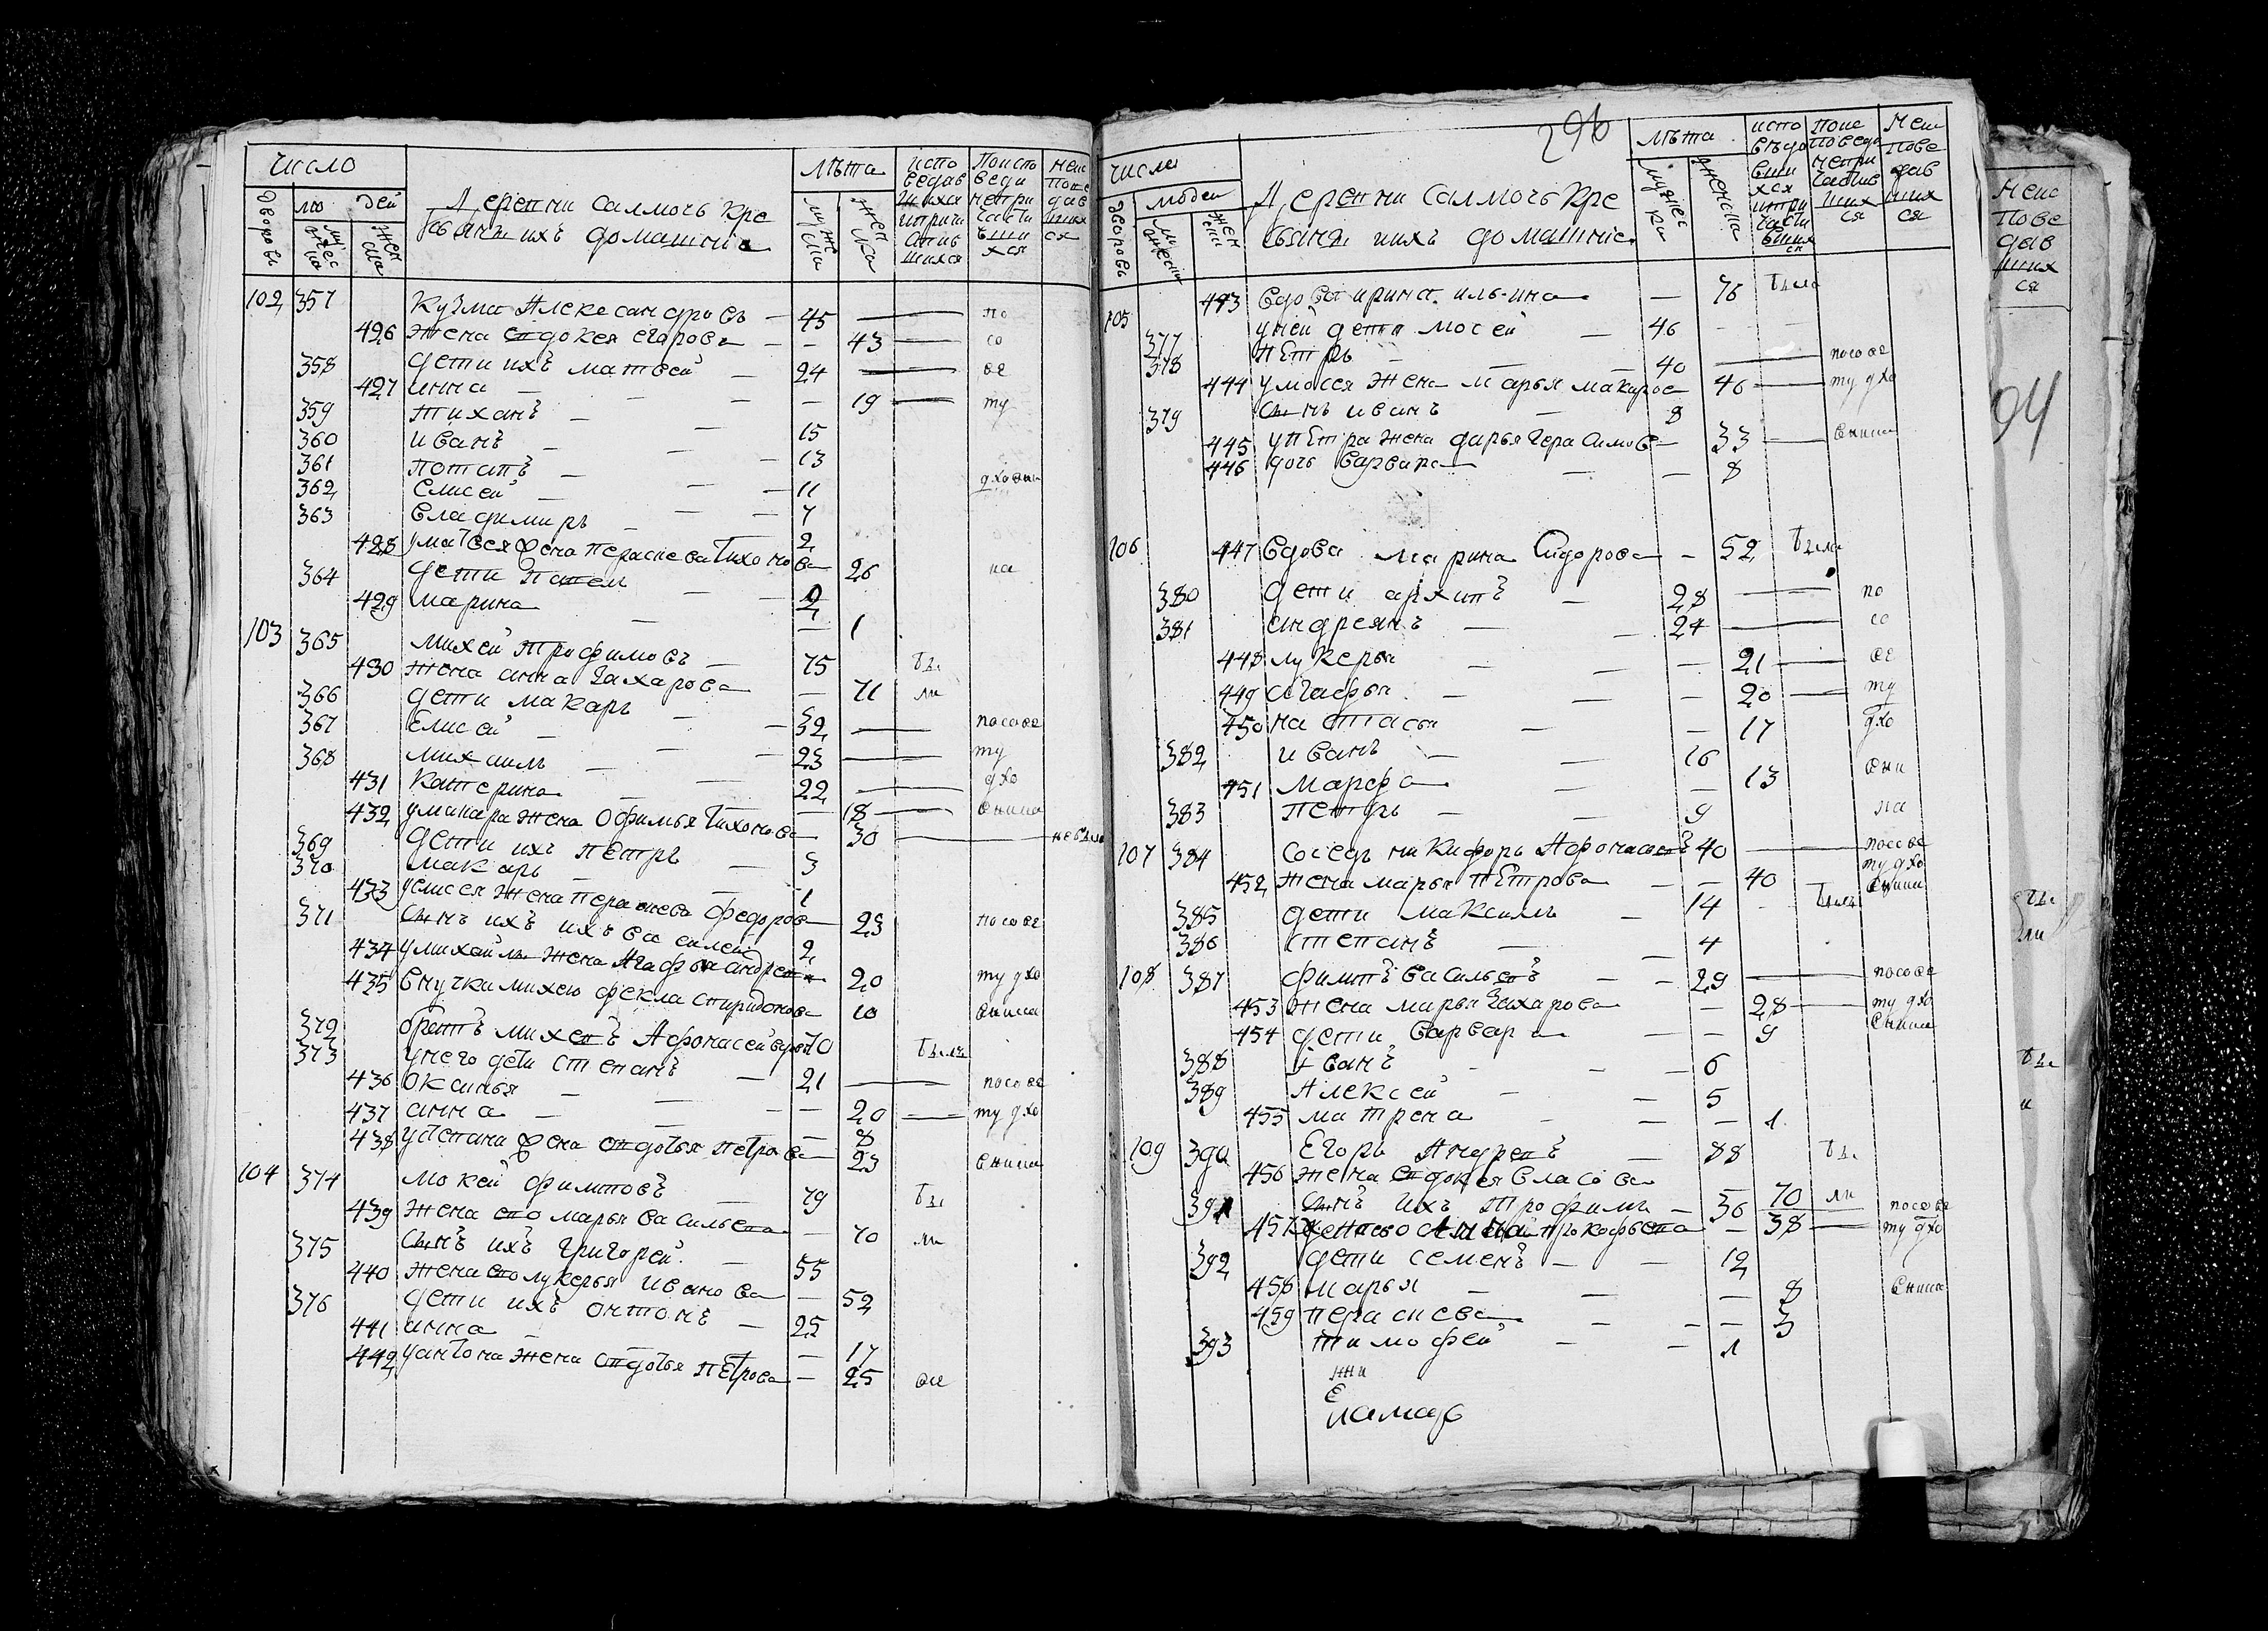 число
лю дей
Дворовъ
мужес ка
жен ска
Деревни Салмочъ Кре
стьяне ихъ домашнiя
лѣта
муж ска
жен ска
испо ведав шихся и при часtив шихся
По испо веди не при части вши хся
не ис пове дав ших ся
102 357 Кузма Александровъ — 45 — по
426 жена евдокея егорова — — 43 — со
358 дети ихъ матвей — 24 — ве
427 анна — — 19 — ту
359 тиханъ — 15
360 иванъ — 13
361 потапъ — 11 дховни
362 елисей — 7
363 владимиръ — 2
428 у матвея жена пераскева тихонова 26 ка
364 дети павел — 2
429 марина — 1
103 365 михей трофимовъ — 75 бы
430 жена анна захарова — 71 ли
366 дети макаръ — 32 — посове
367 елисей — 23 — ту
368 михаилъ — 22 — дхо
431 катерина — 18 — вника
432 у макара жена офимья тихонова — 30 — не была
369 дети ихъ петръ — 3
370 макаръ — 1
433 у елисея жена пераскева федорова — 23 посове
371 сынъ ихъ ихъ василей 2
434 у михайлы жена агафья андреева 20 ту дхо
435 внучка михею фекла спиридонова 10 вника
372 братъ михевъ Афонасей 70 были
373 у него дети степанъ — 21 — посове
436 оксинья — — 20 — ту дхо
437 анна — — 8
438 у степана жена евдотья петрова — 23 вника
104 374 мокей филиповъ — 79 бы
439 жена ево марья васильева — 70 ли
375 сынъ ихъ григорей — 55
440 жена ево лукерья иванова — 52
376 дети ихъ онтонъ — 25
441 анна — — 17
442 у антона жена евдотья петрова — 25 ве
296
число
людей
дворовъ
Деревни Салмочъ Кре
стьяне ихъ домашнiе
лѣта
мужес ка
женска
испо вѣдо вши хся и при часtи вших ся
По ис поведе не при частив ших ся
Не ис пове дав ших ся
105 443 вдова ирина ильина — 76 была
377 у ней дети мосей — 46 — —
378 петръ — 40 — посове
444 у мосея жена марья макарова 46 — ту дхо
379 сынъ иванъ — 8
445 у петра жена дарья герасимова 33 — вника
446 дочь варвара — — 8
106 447 вдова марина Сидорова — 52 была
380 дети архипъ — 28 — по
381 андреянъ — 24 — со
448 лукерья — — 21 — ве
449 агафья — — 20 — ту
450 настасья — — 17 дхо
382 иванъ — 16
451 марфа — — 13 вни
383 петръ — 9 ка
107 384 соседъ никифоръ Афонасьевъ 40 — посове
452 жена марья петрова — — 40 ту дхо вника
385 дети максимъ — 14 былъ
386 степанъ — 4
108 387 филипъ васильевъ — 29 — посове
453 жена марья захарова — 28 — ту дхо
454 дети варвара — — 9 вника
388 Iванъ — 6
389 Алексей — 5
455 матрена — — 1
109 390 Егоръ Андреевъ — 88 бы
456 жена евдокея власова 70 ли
391 сынъ ихъ трофимъ — 36 посове
457 жена ево анна прокофьева — 38 — ту дхо
392 дети семенъ — 12
458 марья — — 8 вника
459 пераскева — — 3
393 тимофей — 1
Не ис пове дав ших ся
94
бы
ли
бы